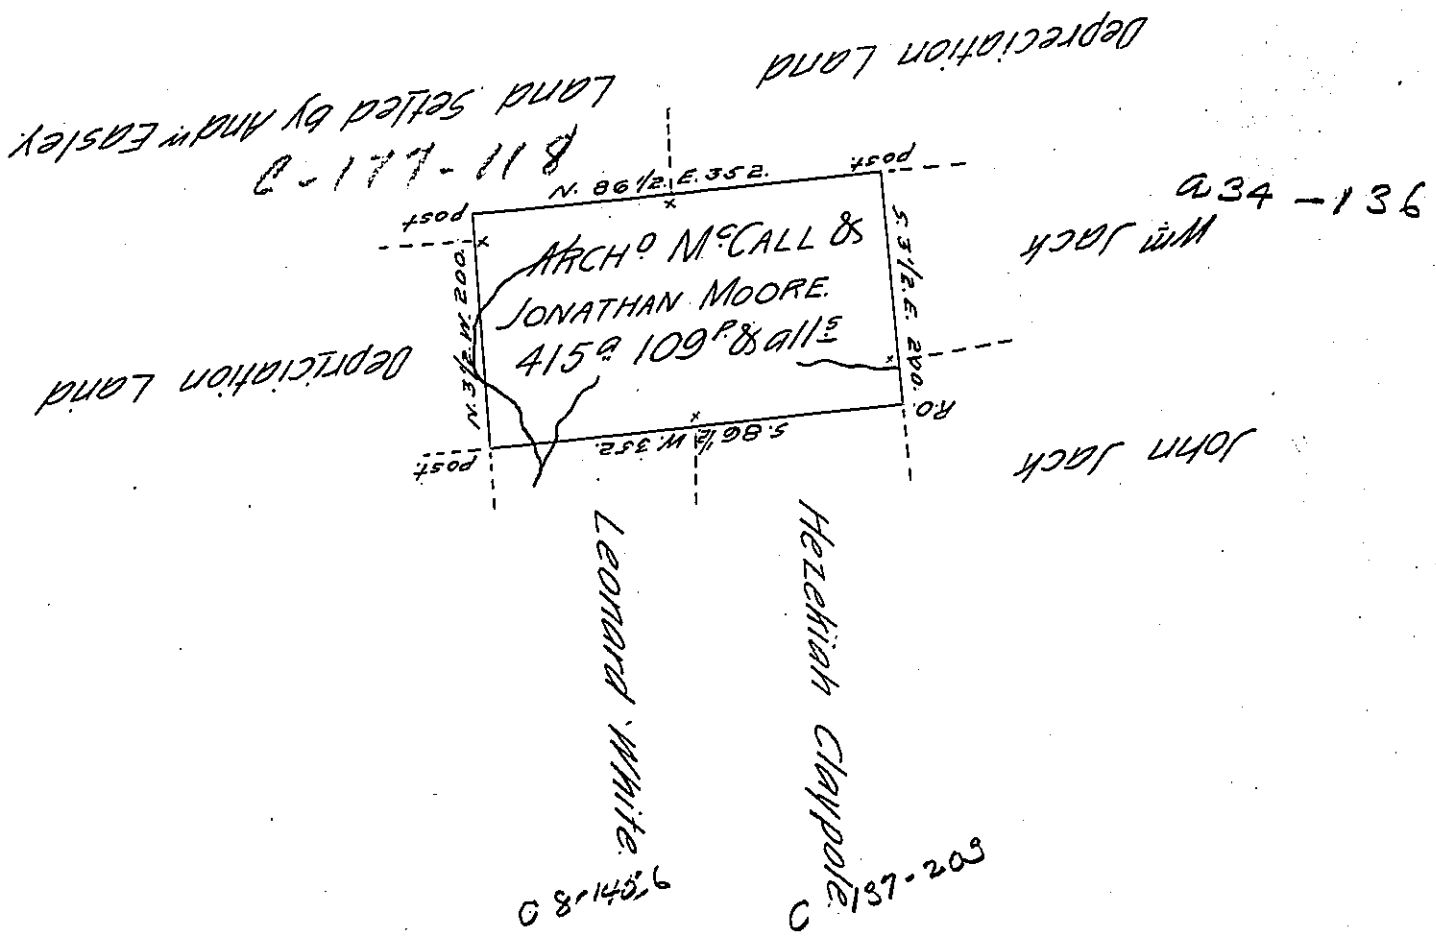 Depreciation Land
Land Settled by Andw Easley.
N. 86 1/2 E. 352.
post
post
a34-136
Wm Jack
ARCHD McCALL &
JONATHAN MOORE.
415a 109p & alls
S 3 1/2 E 200.
N. 3 1/2 W 200.
Depriciation Land
R.O.
post.
S. 86 1/2 W. 352.
John Jack
Leonard White.
Hezekiah Claypole.
C 137-209